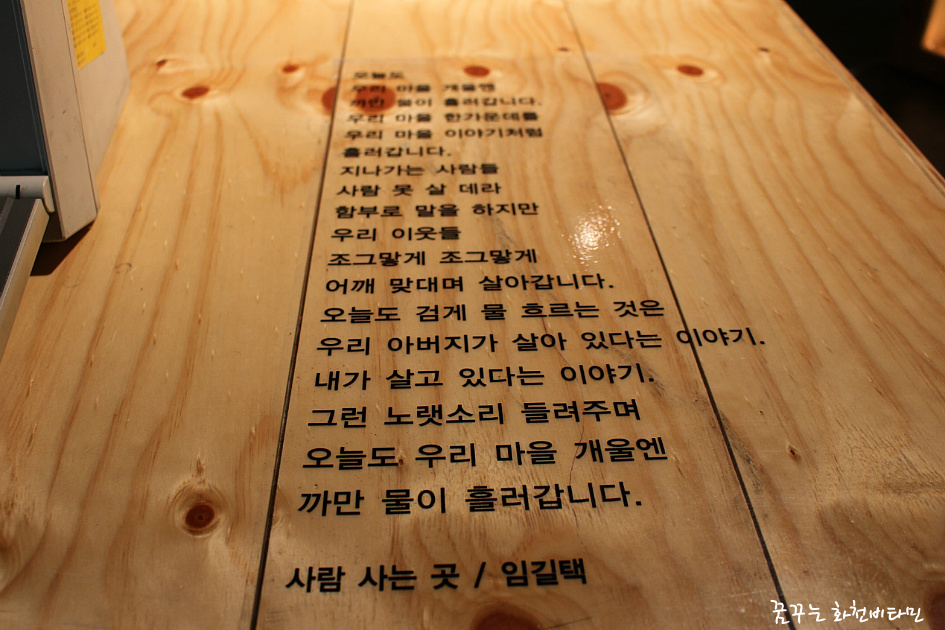 오늘도
우리 마을 개울엔
까만 물이 흘러갑니다.
우리 마을 한가운데를
우리 마을 이야기처럼
흘러갑니다.
지나가는 사람들
사람 못 살 데라
함부로 말을 하지만
우리 이웃들
조그맣게 조그맣게
어깨 맞대며 살아갑니다.
오늘도 검게 물 흐르는 것은
우리 아버지가 살아 있다는 이야기.
내가 살고 있다는 이야기.
그런 노랫소리 들려주며
오늘도 우리 마을 개울엔
까만 물이 흘러갑니다.
사람 사는 곳 / 임길택
꿈꾸는 화천비타민